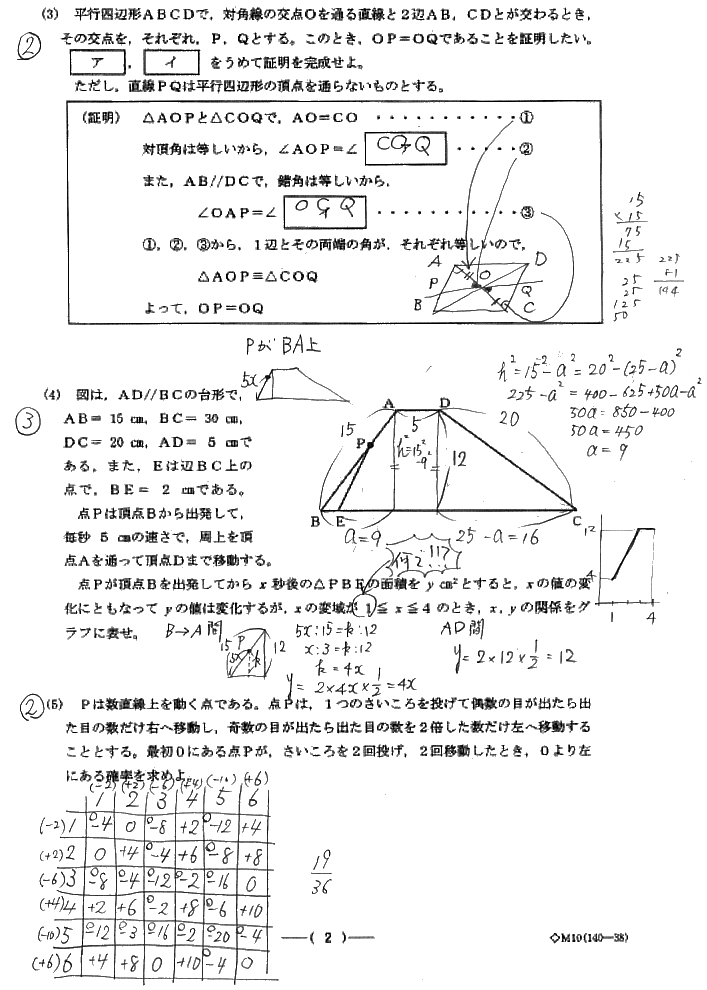 (3) 平行四辺形ABCDで，対角線の交点Oを通る直線と2辺AB，CDとが交わるとき，
② その交点を，それぞれ，P，Qとする。このとき，OP＝OQであることを証明したい。
ア，イ をうめて証明を完成せよ。
ただし，直線PQは平行四辺形の頂点を通らないものとする。
(証明) △AOPと△COQで，AO＝CO ・・・・・・・・・・・①
対頂角は等しいから，∠AOP＝∠ COQ ・・・・・・②
また，AB//DCで，錯角は等しいから，
∠OAP＝∠ OCQ ・・・・・・・・・・・③
①，②，③から，1辺とその両端の角が，それぞれ等しいので，
△AOP≡△COQ
よって，OP＝OQ
A D
P O Q
B C
15
×15
75
15
225
225
25
25
125
50
PがBA上
5x
h²=15²-a²=20²-(25-a)²
225-a²=400-625+50a-a²
50a=850-400
50a=450
a=9
(4) 図は，AD//BCの台形で，
③ AB＝ 15 ㎝，BC＝ 30 ㎝，
DC＝ 20 ㎝，AD＝ 5 ㎝で
ある。また，Eは辺BC上の
点で，BE＝ 2 ㎝である。
点Pは頂点Bから出発して，
毎秒 5 ㎝の速さで，周上を頂
点Aを通って頂点Dまで移動する。
A D
15 5 20
P h²=15²-9² 12
B E C
a=9 25-a=16
何で!!??
12
4
1 4
点Pが頂点Bを出発してから x 秒後の△PBEの面積を y ㎝²とすると，xの値の変
化にともなって yの値は変化するが，xの変域が 1≦ x ≦4 のとき，x，yの関係をグ
ラフに表せ。
B→A間
15 P 12
5x k
5x:15=k:12
x:3=k:12
k=4x
y=2×4x×1/2=4x
AD間
y=2×12×1/2=12
②(5) Pは数直線上を動く点である。点Pは，1つのさいころを投げて偶数の目が出たら出
た目の数だけ右へ移動し，奇数の目が出たら出た目の数を2倍した数だけ左へ移動する
こととする。最初0にある点Pが，さいころを2回投げ，2回移動したとき，0より左
にある確率を求めよ。
(-2) (+2) (-6) (+4) (-10) (+6)
1 2 3 4 5 6
(-2)1 -4 0 -8 +2 -12 +4
(+2)2 0 +4 -4 +6 -8 +8
(-6)3 -8 -4 -12 -2 -16 0
(+4)4 +2 +6 -2 +8 -6 +10
(-10)5 -12 -3 -16 -2 -20 -4
(+6)6 +4 +8 0 +10 -4 0
19
36
—( 2 )—
◇M10(140—38)